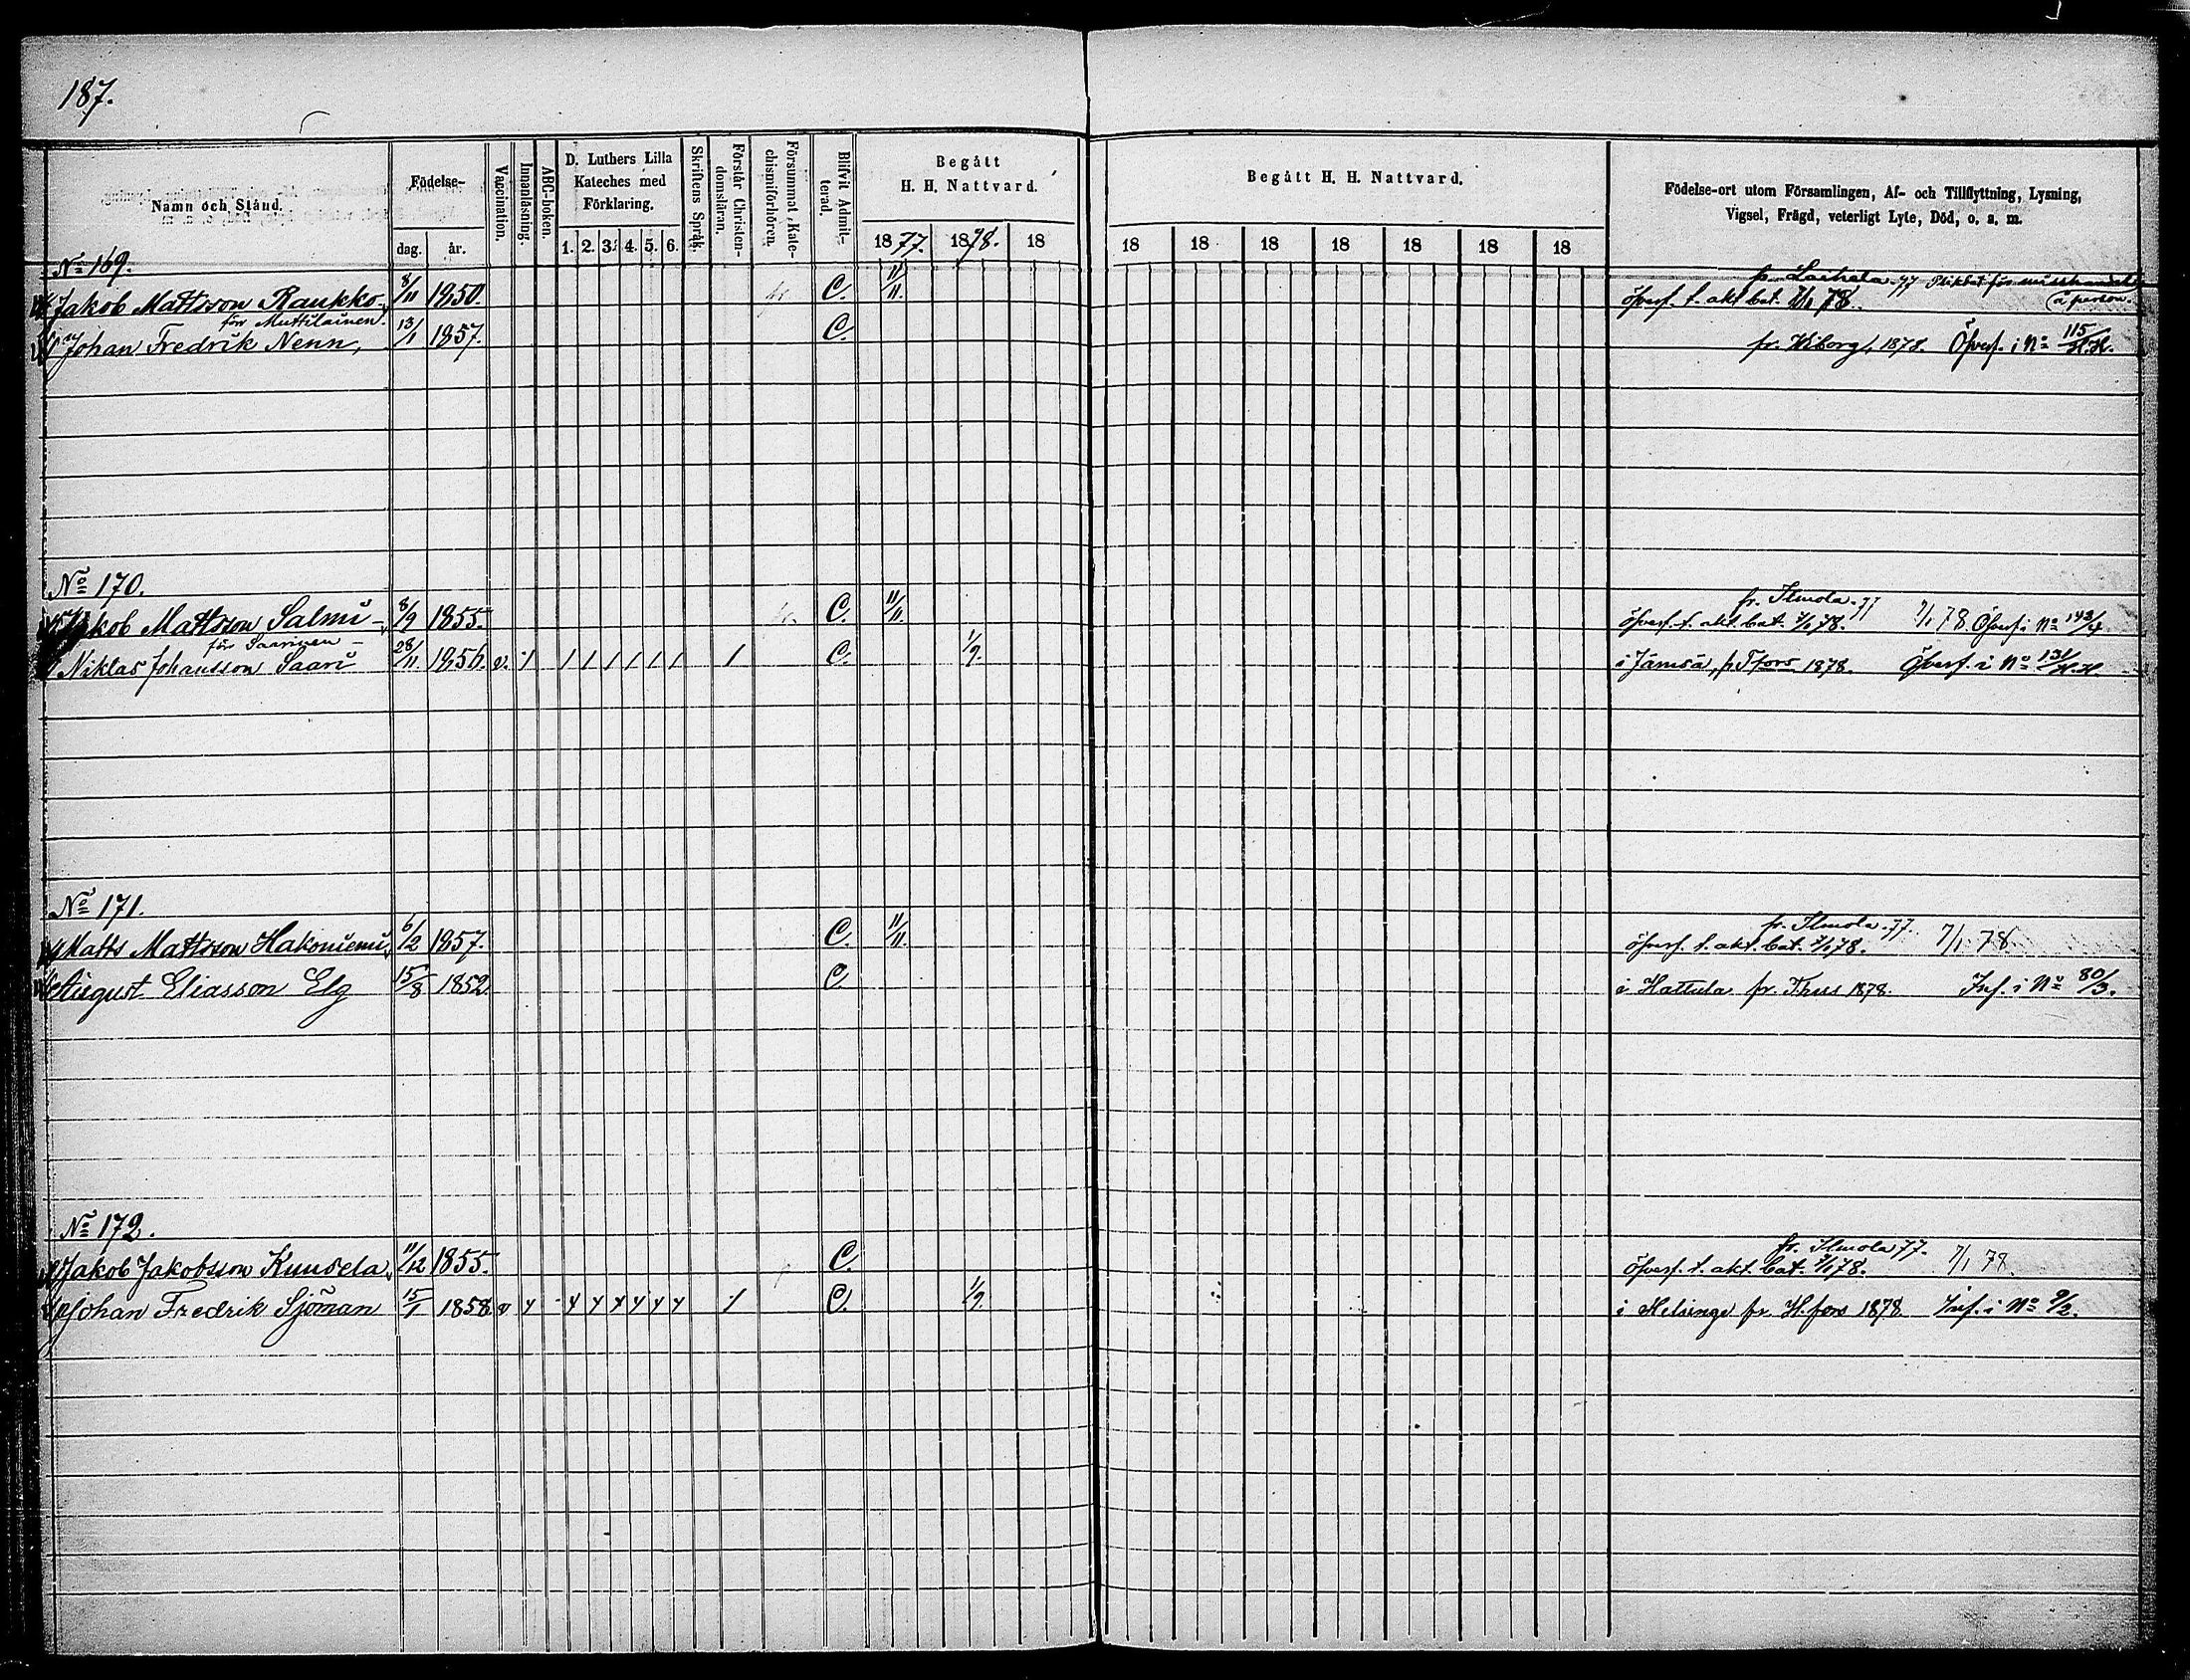 187.
Namn och Stånd.
Födelse-
dag. år.
Vaccination.
Innanläsning.
ABC-boken.
D. Luthers Lilla
Kateches med
Förklaring.
1. 2. 3. 4. 5. 6.
Skriftens Språk.
Förstår Christen-
domsläran.
Försummat Kate-
chismiförhören.
Blifvit Admit-
terad.
Begått
H. H. Nattvard.
1877. 1878. 18
Begått H. H. Nattvard.
18 18 18 18 18 18 18
Födelse-ort utom Församlingen, Af- och Tillflyttning, Lysning,
Vigsel, Frägd, veterligt Lyte, Död, o. s. m.
No 169.
77 Pliktat för misshandel
å person.
Jakob Mattsson Raukko, 8/11 1850. C. 11/11. öfverf. t. akt. bat. 7/1 78.
för Muttilainen.
Johan Fredrik Nenn, 13/1 1857. C. fr. Wiborg, 1878. Öfverf. i No 115/H.H.
No 170.
fr. Ilmola 77
Jakob Mattsson Salmi 8/9 1855. C. 11/11. öfverf. t. akt. bat. 7/1 78. 7/1 78 Öfverf. i No 143/4.
för Saarinen
Niklas Johansson Saari 28/11 1856. v. / / / / / / / / C. 1/9. i Jämsä, fr. T:fors 1878. Öfverf. i No 131/H.H.
No 171.
fr. Ilmola 77.
Matts Mattsson Hakoniemi, 6/2 1857. C. 11/11. öfverf. t. akt. bat. 7/1 78. 7/1 78.
August Eliasson Elg 15/8 1852 C. i Hattula fr. T:hus 1878. Inf. i No 80/3.
No 172.
fr. Ilmola 77.
Jakob Jakobsson Kuusela, 11/12 1855. C. öfverf. t. akt. bat. 7/1 78. 7/1 78.
Johan Fredrik Sjöman 15/1 1858 v C. 1/9. i Helsinge fr. H.fors 1878 Inf. i No 9/2.